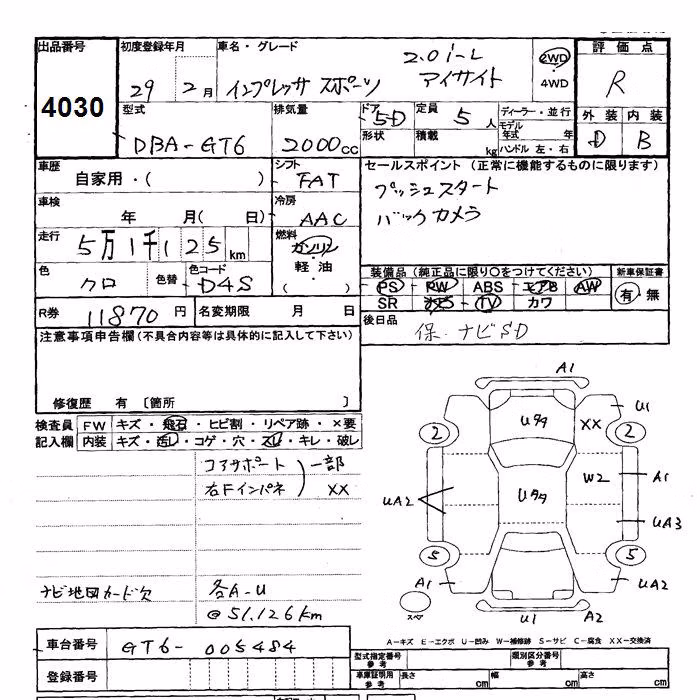 出品番号 初度登録年月 車名・グレード 評価点
4030 29 2月 インプレッサ スポーツ 2.0i-L アイサイト 2WD 4WD R
型式 排気量 ドア 定員 ディーラー・並行 外装 内装
DBA-GT6 2000cc 5D 5人 モデル年式 年 D B
形状 積載 kg ハンドル 左・右
車歴 シフト セールスポイント (正常に機能するものに限ります)
自家用・( ) FAT プッシュスタート
車検 冷房 バックカメラ
年 月( 日) AAC
走行 燃料
5万1千125km ガソリン
軽油
( )
色 色替 色コード 装備品 (純正品に限り○をつけてください) 新車保証書
クロ D4S PS PW ABS エアB AW 有・無
SR カセS TV カワ
R券 11870円 名変期限 月 日 後日品
保.ナビSD
注意事項申告欄(不具合内容等は具体的に記入して下さい)
修復歴 有 〔箇所 〕
検査員 FW キズ・飛石・ヒビ割・リペア跡・×要
記入欄 内装 キズ・汚レ・コゲ・穴・スレ・キレ・破レ
コアサポート 一部
右Fインパネ XX
ナビ地図カード欠 各A-U
@51,126km
A1
U1
2 Uタタ XX 2
W2 A1
UA2 Uタタ
UA3
5 5
A1 UA2
スペア U1 A2
A-キズ E-エクボ U-凹み W-補修跡 S-サビ C-腐食 XX-交換済
車台番号 GT6-005484
型式指定番号 参考 類別区分番号 参考
登録番号 車庫証明用 参考 長さ cm 幅 cm 高さ cm